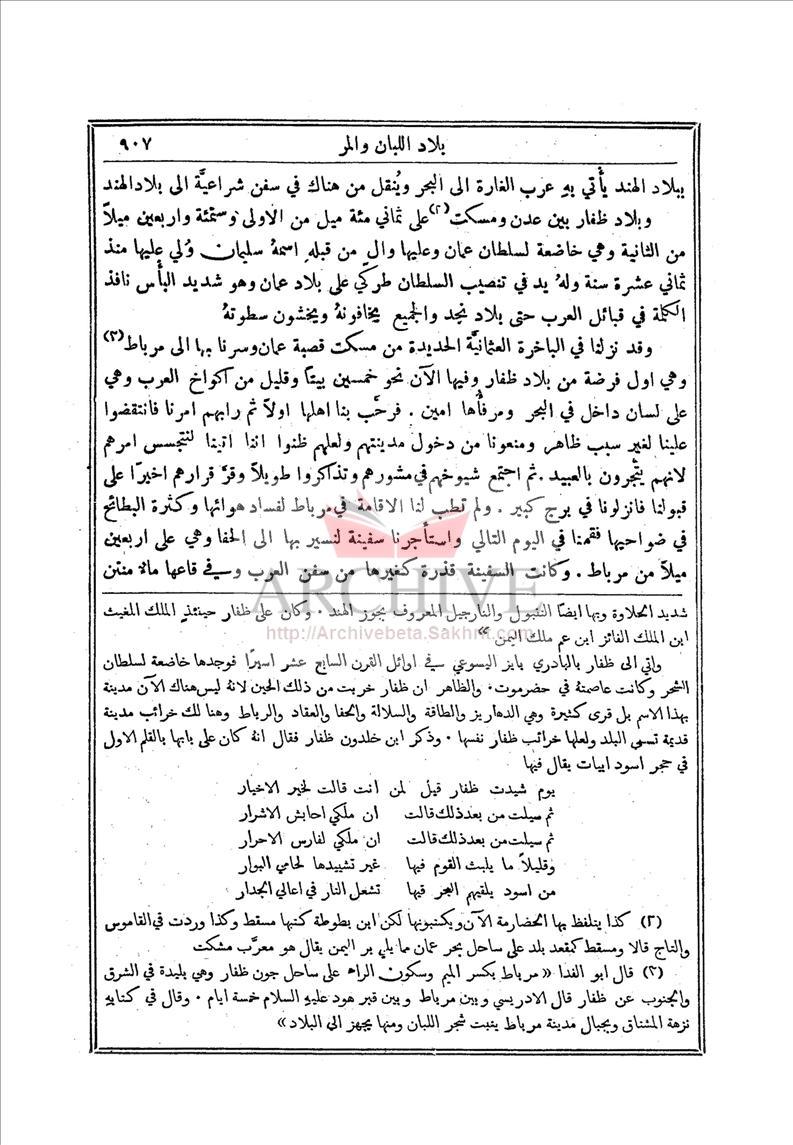 بلاد اللبان والمر
٩٠٧
ببلاد الهند يأتي بهِ عرب الغارة الى البحر ويُنقل من هناك في سفن شراعيَّة الى بلاد الهند
وبلاد ظفار بين عدن ومسكت(٢) على ثماني مئة ميل من الاولى وستمئة واربعين ميلاً
من الثانية وهي خاضعة لسلطان عمان وعليها والٍ من قبلهِ اسمهُ سليمان وُلي عليها منذ
ثماني عشرة سنة ولهُ يد في تنصيب السلطان طركي على بلاد عمان وهو شديد البأس نافذ
الكلمة في قبائل العرب حتى بلاد نجد والجميع يخافونهُ ويخشون سطوتهُ
وقد نزلنا في الباخرة العثمانيَّة الحديدة من مسكت قصبة عمان وسرنا بها الى مرباط(٣)
وهي اول فرضة من بلاد ظفار وفيها الآن نحو خمسين بيتًا وقليل من اكواخ العرب وهي
على لسان داخل في البحر ومرفأُها امين . فرحَّب بنا اهلها اولاً ثم رابهم امرنا فانتقضوا
علينا لغير سبب ظاهر ومنعونا من دخول مدينتهم ولعلهم ظنوا اننا اتينا لنتجسس امرهم
لانهم يتَّجرون بالعبيد . ثم اجتمع شيوخهم في مشورهم وتذاكروا طويلاً وقرَّ قرارهم اخيرًا على
قبولنا فانزلونا في برج كبير . ولم تطب لنا الاقامة في مرباط لفساد هوائها وكثرة البطائح
في ضواحيها فقمنا في اليوم التالي واستأجرنا سفينة لنسير بها الى الحفا وهي على اربعين
ميلاً من مرباط . وكانت السفينة قذرة كغيرها من سفن العرب وفي قاعها مالا منتن
ARCHIVE
شديد الحلاوة وبها ايضًا التنبول والنارجيل المعروف بجوز الهند . وكان على ظفار حينئذٍ الملك المغيث
ابن الملك الفائز ابن عم ملك اليمن »
http://Archivebeta.Sakhrit.com
واتي الى ظفار بالبادري بايز اليسوعي في اوائل القرن السابع عشر اسيرًا فوجدها خاضعة لسلطان
الشحر وكانت عاصمتهُ في حضرموت . والظاهر ان ظفار خربت من ذلك الحين لانهُ ليس هناك الآن مدينة
بهذا الاسم بل قرى كثيرة وهي الدهاريز والطاقة والسلالة والحفا والعقاد والرباط وهنالك خرائب مدينة
قديمة تسمى البلد ولعلها خرائب ظفار نفسها . وذكر ابن خلدون ظفار فقال انهُ كان على بابها بالقلم الاول
في حجر اسود ابيات يقال فيها
يوم شيدت ظفار قيل لمن انت قالت لخير الاخيار
ثم سيلت من بعد ذلك قالت ان ملكي احابش الاشرار
ثم سيلت من بعد ذلك قالت ان ملكي لفارس الاحرار
وقليلاً ما يلبث القوم فيها غير تشييدها لحامي البوار
من اسود يلقيهم البحر فيها تشعل النار في اعالي الجدار
(٢) كذا يتلفظ بها الحضارمة الآن ويكتبونها لكن ابن بطوطة كتبها مسقط وكذا وردت في القاموس
والتاج قالا ومسقط كمقعد بلد على ساحل بحر عمان مما يلي بر اليمن يقال هو معرَّب مشكت
(٣) قال ابو الفدا « مرباط بكسر الميم وسكون الراء على ساحل جون ظفار وهي بليدة في الشرق
والجنوب عن ظفار قال الادريسي وبين مرباط وبين قبر هود عليهِ السلام خمسة ايام . وقال في كتابهِ
نزهة المشتاق وبجبال مدينة مرباط ينبت شجر اللبان ومنها يجهز الى البلاد »